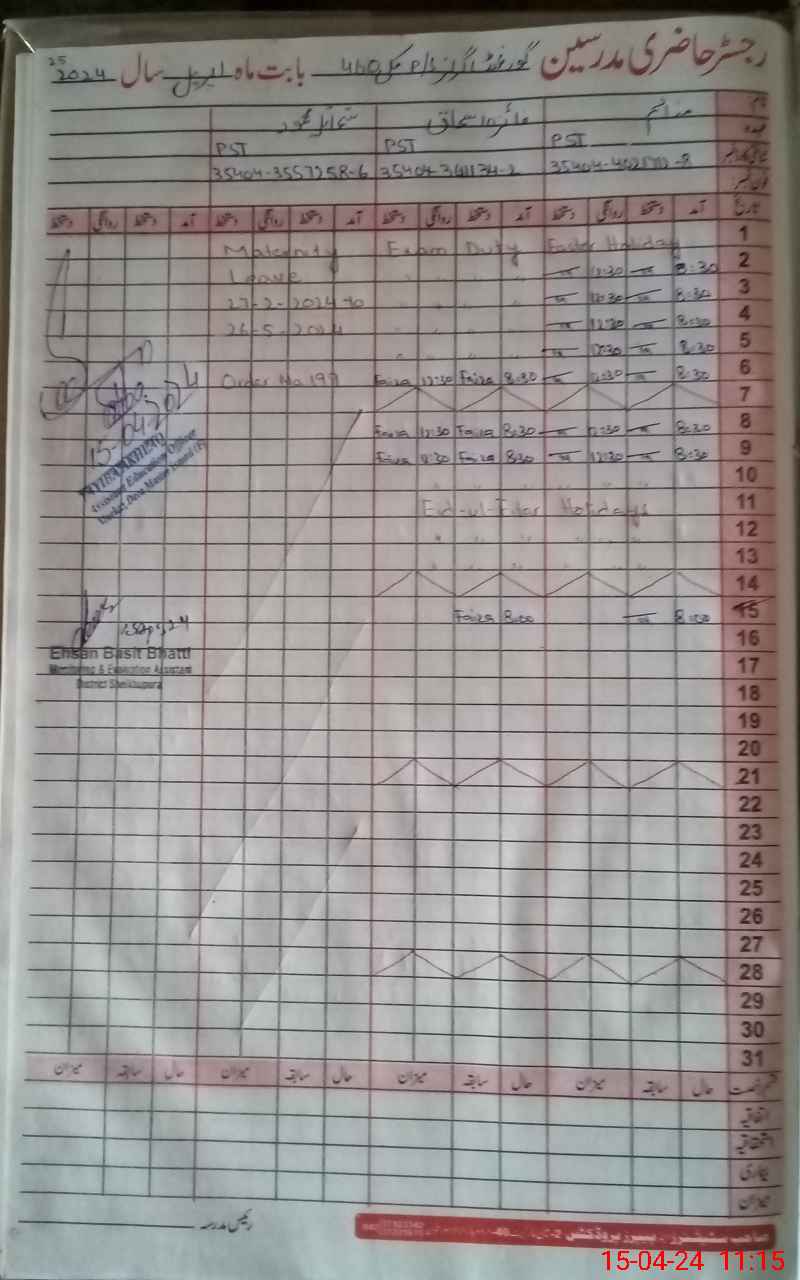 رجسٹر حاضری مدرسین گورنمنٹ گرلز بابت ماہ اپریل سال 2024
نام
عہدہ PST PST PST
35404-3557258-6
تاریخ آمد دستخط روانگی دستخط آمد دستخط روانگی دستخط آمد دستخط روانگی دستخط آمد دستخط روانگی دستخط
1 Easter Holiday Exam Duty Maternity
2 8:30 12:30 " " " Leave
3 8:30 12:30 " " " 27-2-2024 to
4 8:30 12:30 " " " 26-5-2024
5 8:30 12:30 " " "
6 8:30 12:30 Faiza 8:30 Faiza 12:30 Order No 197
7
8 8:30 12:30 Faiza 8:30 Faiza 12:30
9 8:30 12:30 Faiza 8:30 Faiza 12:30
10
11 Eid-ul-Fiter Holidays
12 " " " "
13 " " " "
14
15 8:00 Faiza 8:00
16
17
18
19
20
21
22
23
24
25
26
27
28
29
30
31
15-04-2024
Assistant Education Officer
Ehsan Basit Bhatti
Monitoring & Evaluation Assistant
District Sheikhupura
قسم رخصت حال سابقہ میزان حال سابقہ میزان حال سابقہ میزان حال سابقہ میزان
اتفاقیہ
استحقاقیہ
بیماری
میزان
رئیس مدرسہ
15-04-24 11:15